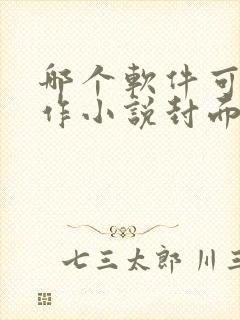 哪个軟件可
作小說封而
七三太郎 川三